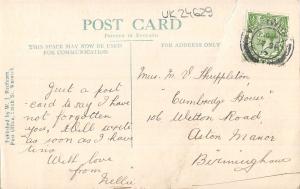 UK24629
POST CARD
PRINTED IN ENGLAND
THIS SPACE MAY NOW BE USED
FOR COMMUNICATION.
FOR ADDRESS ONLY.
Just a post
card to say I have
not forgotten
you, & will write
as soon as I have
time.
With love
from
Nellie
Miss. M. V. Shuffleton,
"Cambridge House"
106 Wetton Road,
Aston Manor
Birmingham
Published by W. L.
Post Office,